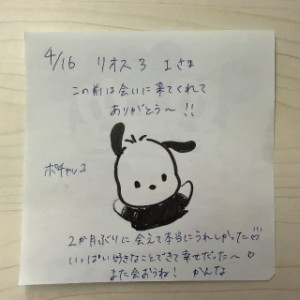 4/16 リオス3 Iさま
この前は会いに来てくれて
ありがとう〜!!
ポチャッコ
2か月ぶりに会えて本当にうれしかった
いっぱい好きなことできて幸せだった〜
また会おうね! かんな